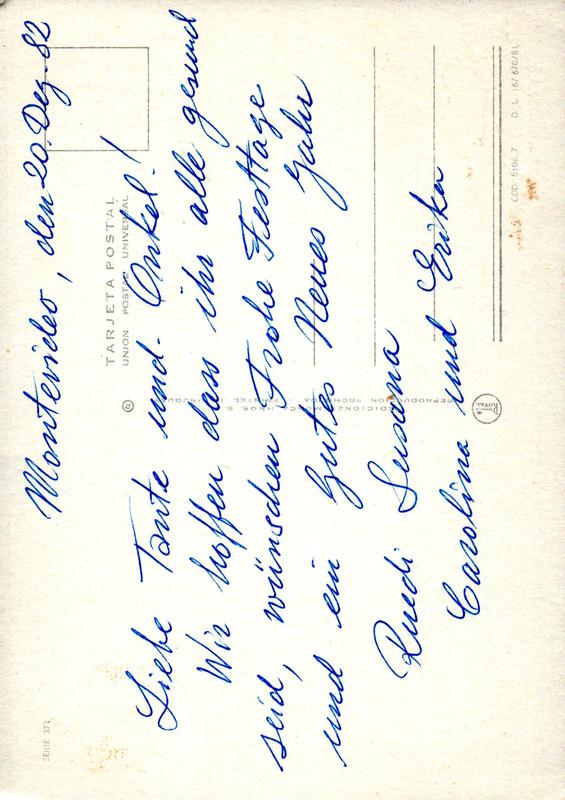 Montevideo, den 20. Dez. 82
Liebe Tante und Onkel!
Wir hoffen dass ihr alle gesund
seid, wünschen Frohe Festtage
und ein Gutes Neues Jahr
Ruedi Susana
Carolina und Erika
TARJETA POSTAL
UNION POSTAL UNIVERSAL
SERIE 373
COD. 5166.7 D. L. 167.670/81